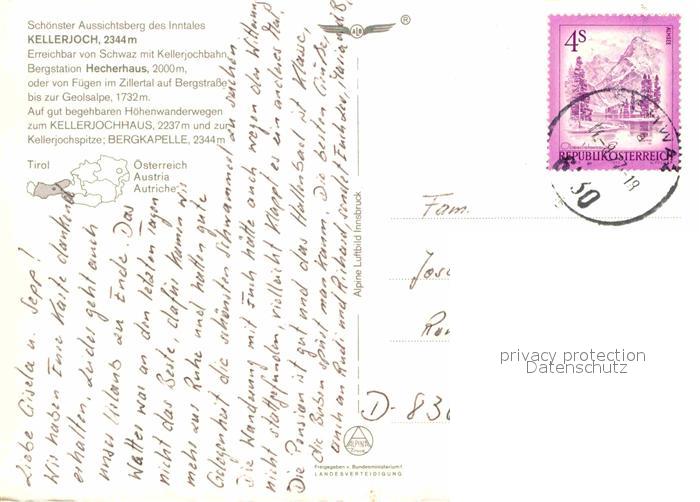 Schönster Aussichtsberg des Inntales
KELLERJOCH, 2344 m
Erreichbar von Schwaz mit Kellerjochbahn,
Bergstation Hecherhaus, 2000 m,
oder von Fügen im Zillertal auf Bergstraße
bis zur Geolsalpe, 1732 m.
Auf gut begehbaren Höhenwanderwegen
zum KELLERJOCHHAUS, 2237 m und zur
Kellerjochspitze; BERGKAPELLE, 2344 m
Tirol
Österreich
Austria
Autriche
®
Liebe Gisela u. Sepp!
Wir haben Eure Karte dankend
erhalten. Leider geht auch
unser Urlaub zu Ende. Das
Wetter war an den letzten Tagen
nicht das Beste, dafür kamen wir
mehr zur Ruhe und hatten gute
Gelegenheit die schönsten Schwammerl zu suchen
Die Wanderung mit Euch hätte auch wegen der Witterung
nicht stattgefunden, vielleicht klappt es ein anderes Mal.
Die Pension ist gut und das Hallenbad ist Klasse,
die Buben spürt man kaum. Die besten Grüße
auch an Rudi und Richard sendet Euch
Alpine Luftbild Innsbruck
ALPINE
Freigegeben v. Bundesministerium f.
LANDESVERTEIDIGUNG
4s
ALMSEE
Oberösterreich
REPUBLIK ÖSTERREICH
Fam.
D-830
privacy protection
Datenschutz